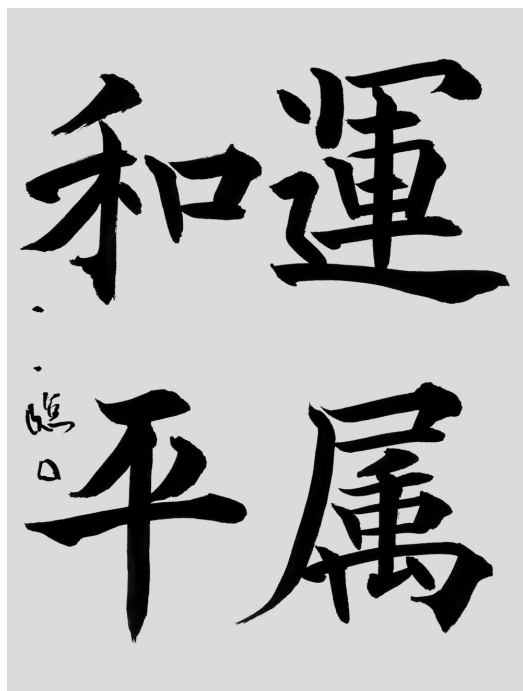 運属
和平
臨